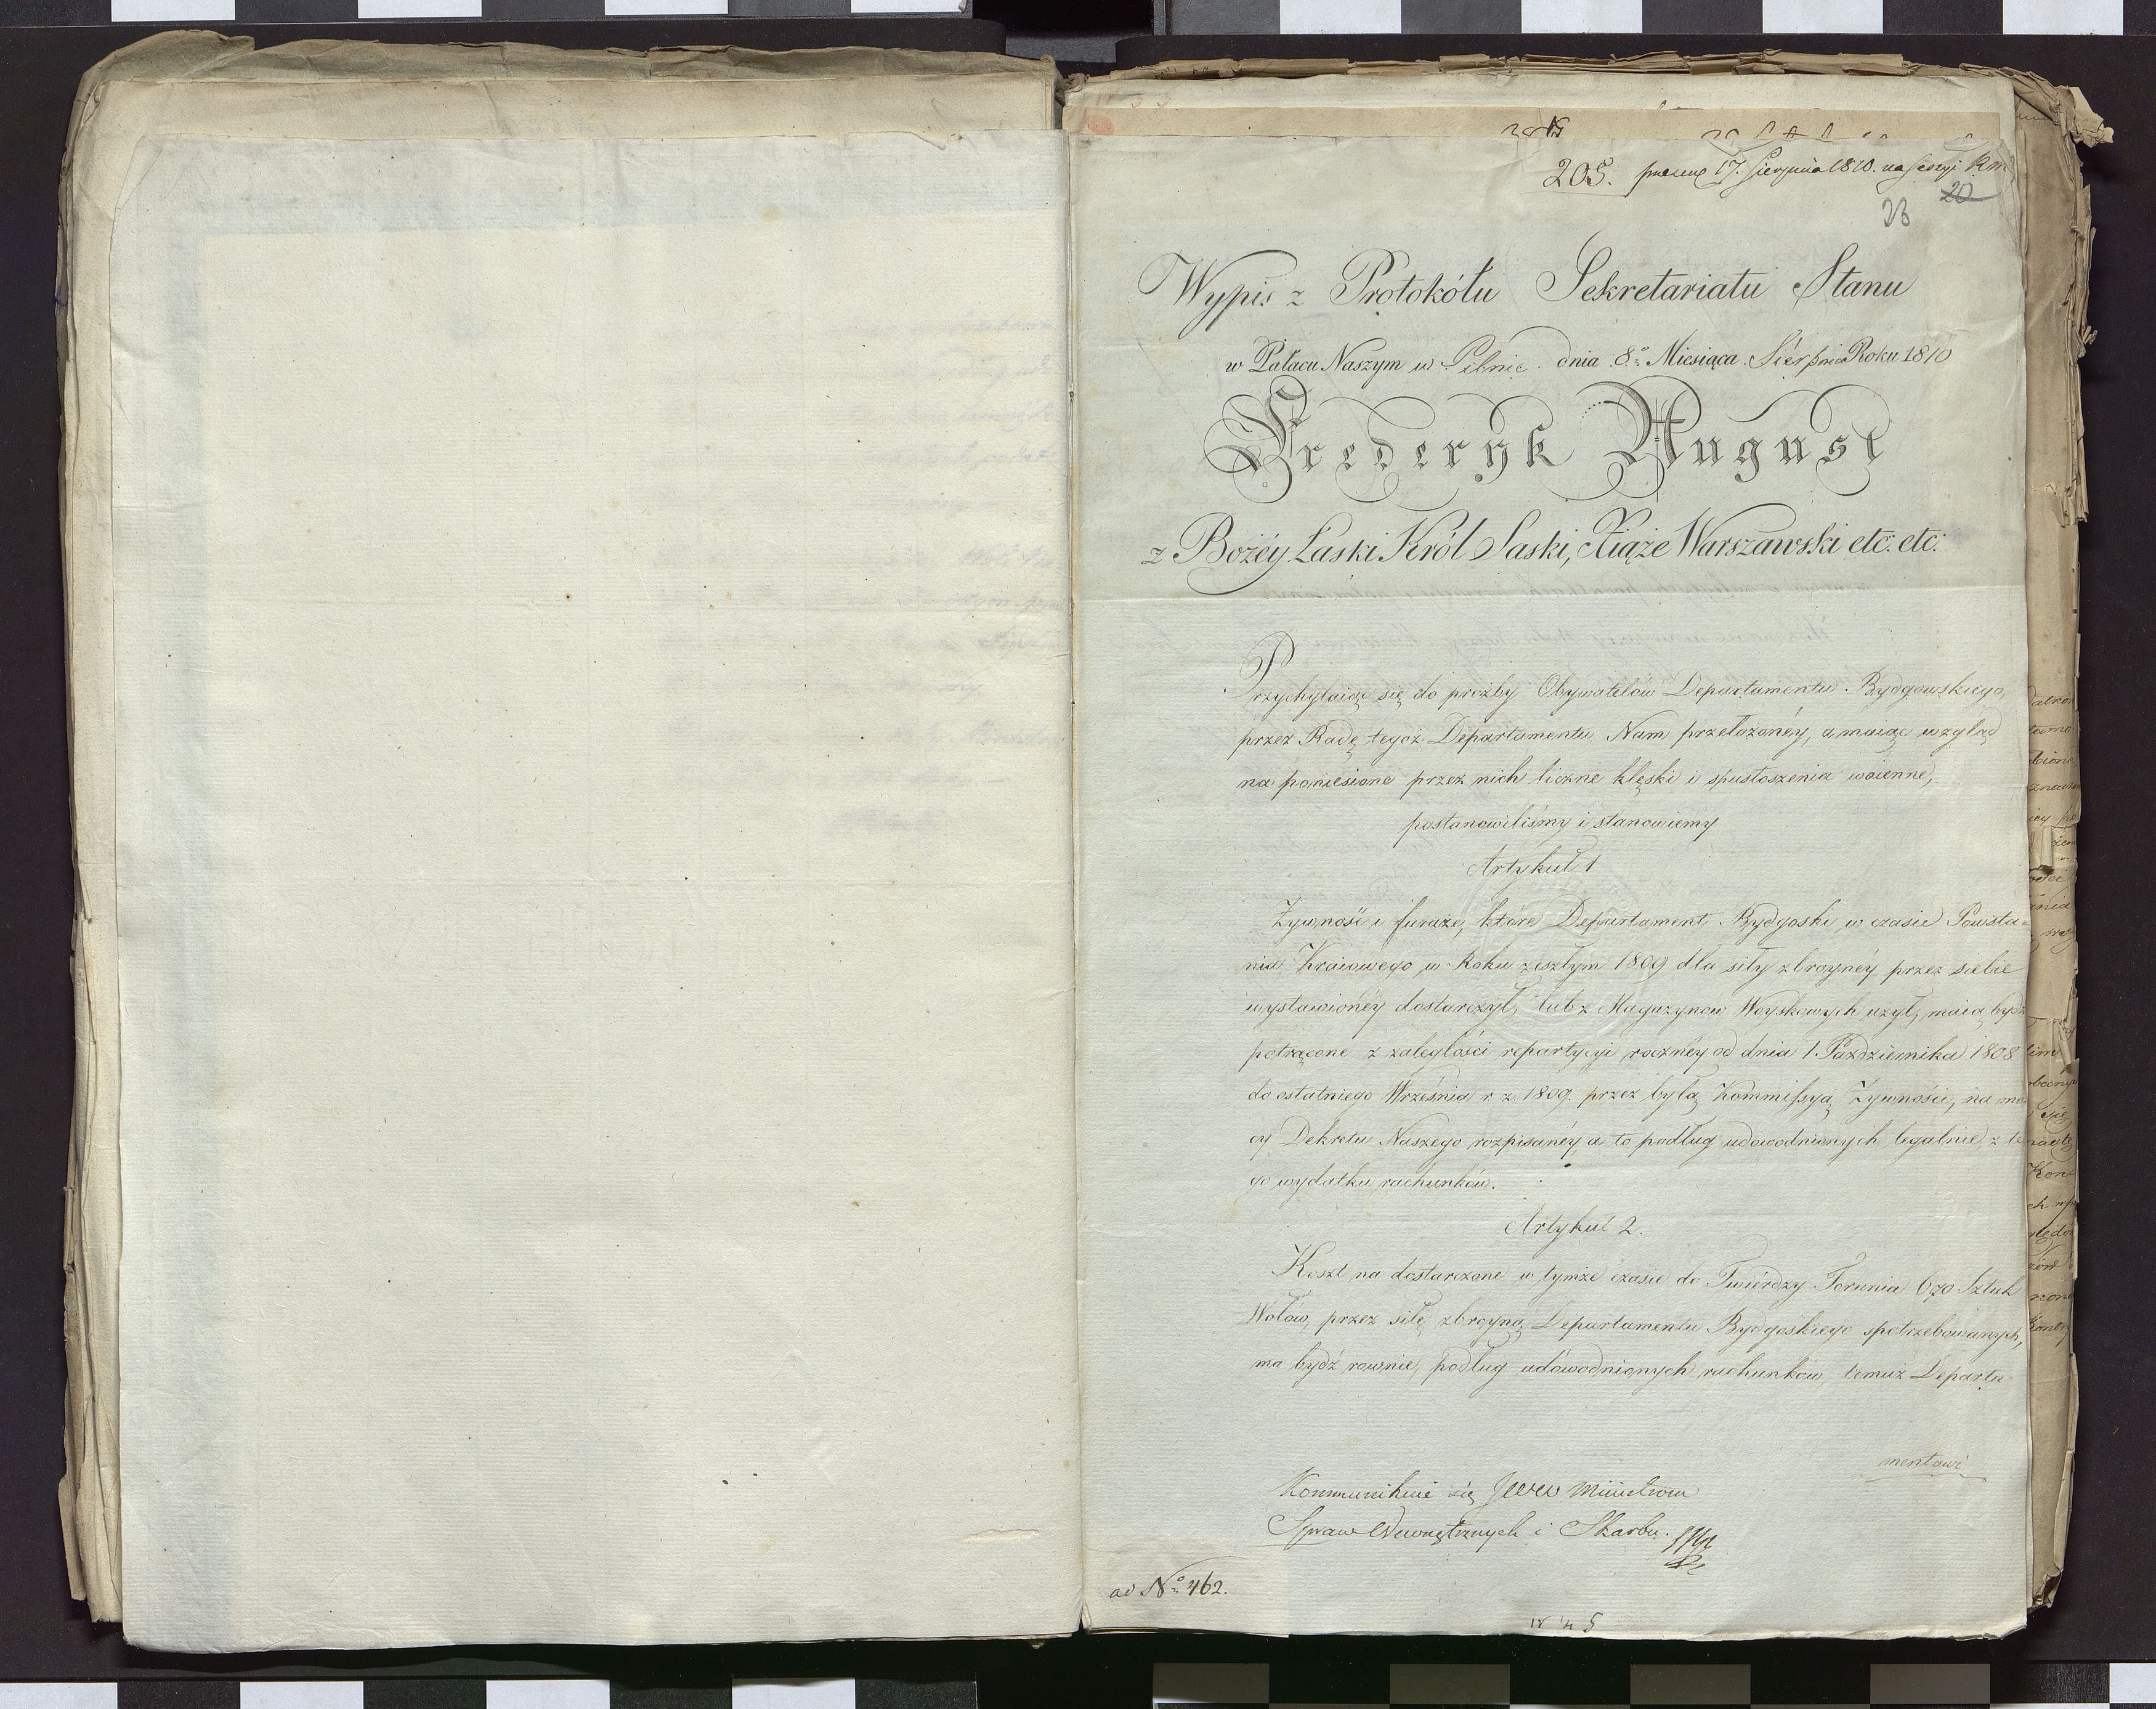 205. praes. 17. Sierpnia 1810. na sessyi R.M.
20
23
Wypis z Protokółu Sekretariatu Stanu
w Pałacu Naszym w Pilnic. dnia 8º Miesiąca Sierpnia Roku 1810
Frederyk August
z Bożéy Łaski Król Saski, Xiąże Warszawski etc: etc:
Przychylaiąc się do prożby Obywatelów Departamentu Bydgowskiego,
przez Radę tegoż Departamentu Nam przełożonéy, a maiąc wzgląd
na poniesione przez nich liczne klęski i spustoszenia woienne,
postanowiliśmy i stanowiemy
Artykuł 1
Żywność i furaże, które Departament Bydgoski w czasie Powsta=
nia Kraiowego w Roku zeszłym 1809 dla siły zbroynéy przez siebie
wystawionéy dostarczył, lub z Magazynow Woyskowych użył, maią bydź
potrącone z zaległości repartycyi rocznéy od dnia 1 Października 1808
do ostatniego Września r. z. 1809. przez byłą Kommissyą Żywności, na mo
cy Dekretu Naszego rozpisanéy, a to podług udowodnionych legalnie z te
go wydatku rachunków.
Artykuł 2.
Koszt na dostarczone w tymże czasie do Twierdzy Torunia 670 Sztuk
Wołow, przez siłę zbroyną Departamentu Bydgoskiego spotrzebowanych,
ma bydź rownie, podług udowodnionych rachunkow, temuż Departa
mentowi
Kommunikuie się JWW Ministrom
Spraw Wewnętrznych i Skarbu.
ad Nº 462.